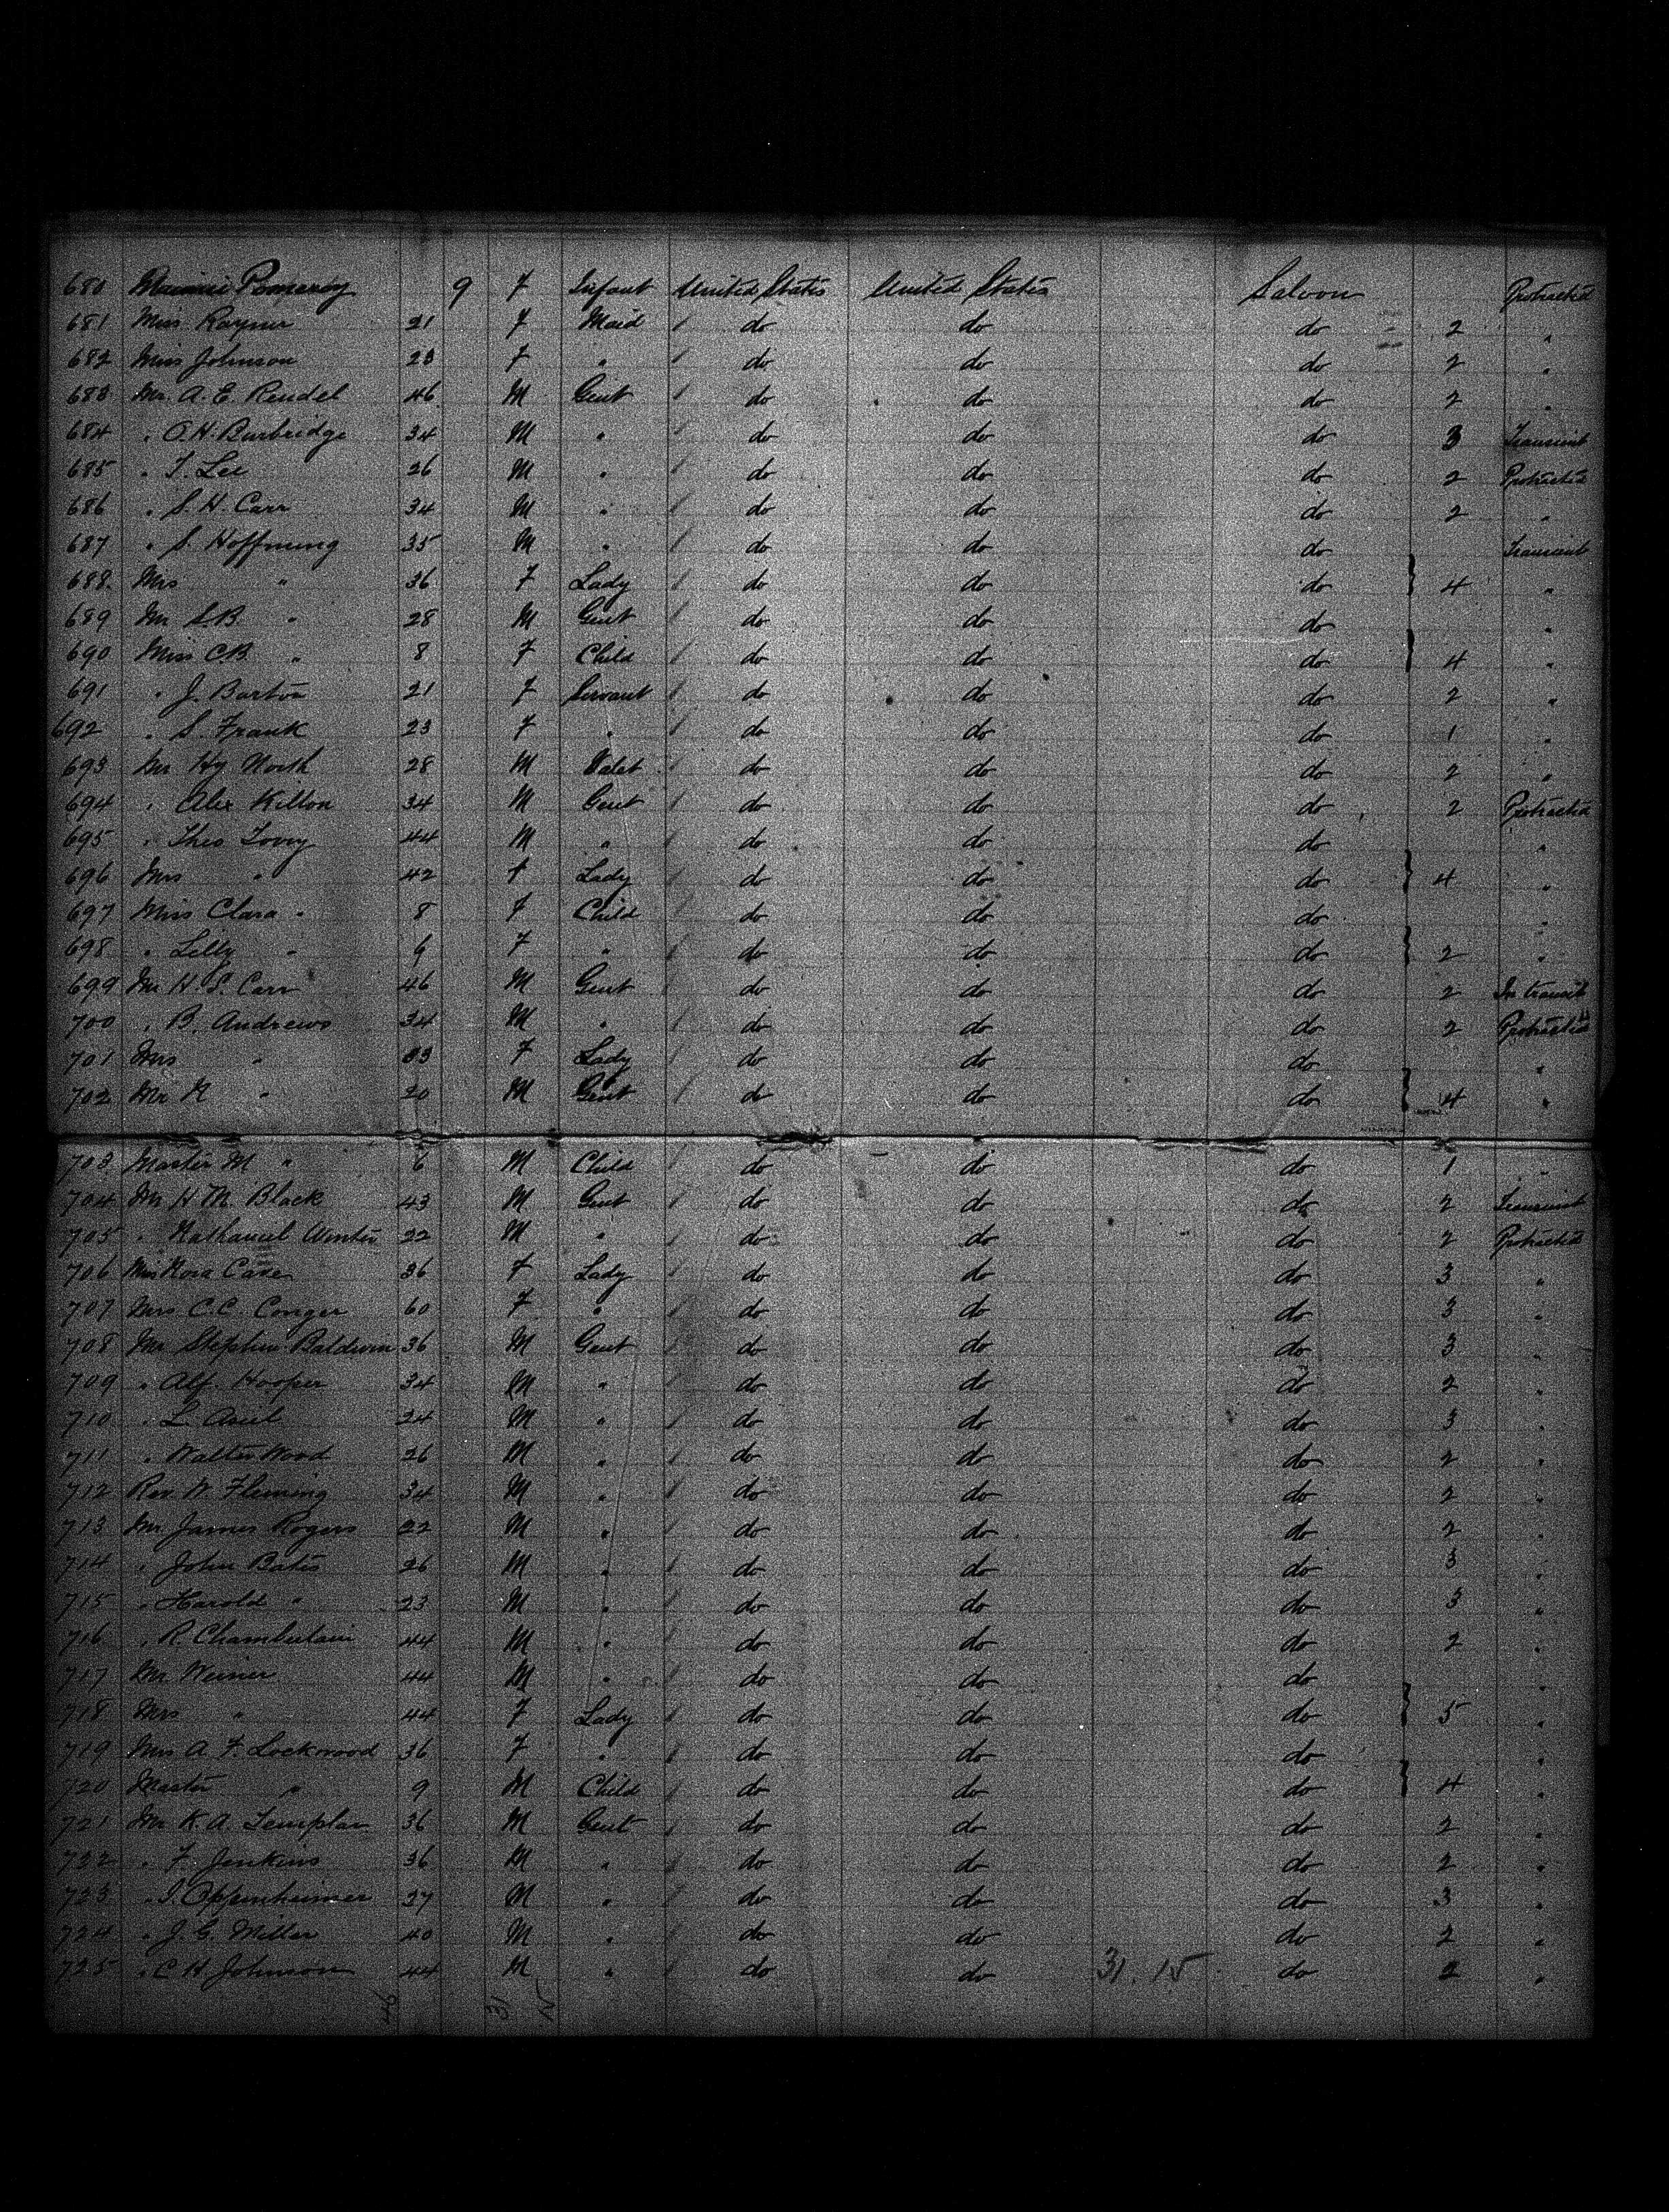 680 Pomeroy 9 F Infant United States United States Saloon Protracted
681 Miss Rayner 21 F Maid do do do 2 "
682 Miss Johnson 23 F " do do do 2 "
683 Mr. A. E. Rendel 46 M Gent do do do 2 "
684 " O. H. Burbridge 34 M " do do do 3 Transient
685 " T. Lee 26 M " do do do 2 Protracted
686 " S. H. Carr 34 M " do do do 2 "
687 " S. Hoffnung 35 M " do do do Transient
688 Mrs " 36 F Lady do do do 4 "
689 Mr S.B. " 28 M Gent do do do "
690 Miss C.B. " 8 F Child do do do 4 "
691 " J. Barton 21 F Servant do do do 2 "
692 " S. Frank 23 F " do do do 1 "
693 Mr Hy North 28 M Valet do do do 2 "
694 " Alex Kitton 34 M Gent do do do 2 Protracted
695 " Theo 44 M " do do do "
696 Mrs " 42 f Lady do do do 4 "
697 Miss Clara " 8 F Child do do do "
698 " Lilly " 6 F " do do do 2 "
699 Mr H. S. Carr 46 M Gent do do do 2 In transit
700 " B. Andrews 34 M " do do do 2 Protracted
701 Mrs " 33 F Lady do do do "
702 Mr N " 20 M Gent do do do 4 "
703 Master M " 6 M Child do do do 1 "
704 Mr H. M. Black 43 M Gent do do do 2 Transient
705 " Nathaniel Winter 22 M " do do do 2 Protracted
706 Miss Nora Case 36 F Lady do do do 3 "
707 Mrs. C. C. Conger 60 F " do do do 3 "
708 Mr Stephen Baldwin 36 M Gent do do do 3 "
709 " Alf. Hooper 34 M " do do do 2 "
710 " L. 24 M " do do do 3 "
711 " Walter Wood 26 M " do do do 2 "
712 Rev. W. Fleming 34 M " do do do 2 "
713 Mr. James Rogers 22 M " do do do 2 "
714 " John Bates 26 M " do do do 3 "
715 " Harold " 23 M " do do do 3 "
716 " R. Chamberlain 44 M " do do do 2 "
717 Mr Weiner 44 M " do do do "
718 Mrs " 44 F Lady do do do 5 "
719 Mrs A. F. Lockwood 36 F " do do do "
720 Master " 9 M Child do do do 4 "
721 Mr K. A. Templar 36 M Gent do do do 2 "
722 " F. Jenkins 36 M " do do do 2 "
723 " I. Oppenheimer 37 M " do do do 3 "
724 " J. G. Miller 40 M " do do do 2 "
725 " C H Johnson 44 M " do do 31.15 do 2 "
46 31 15